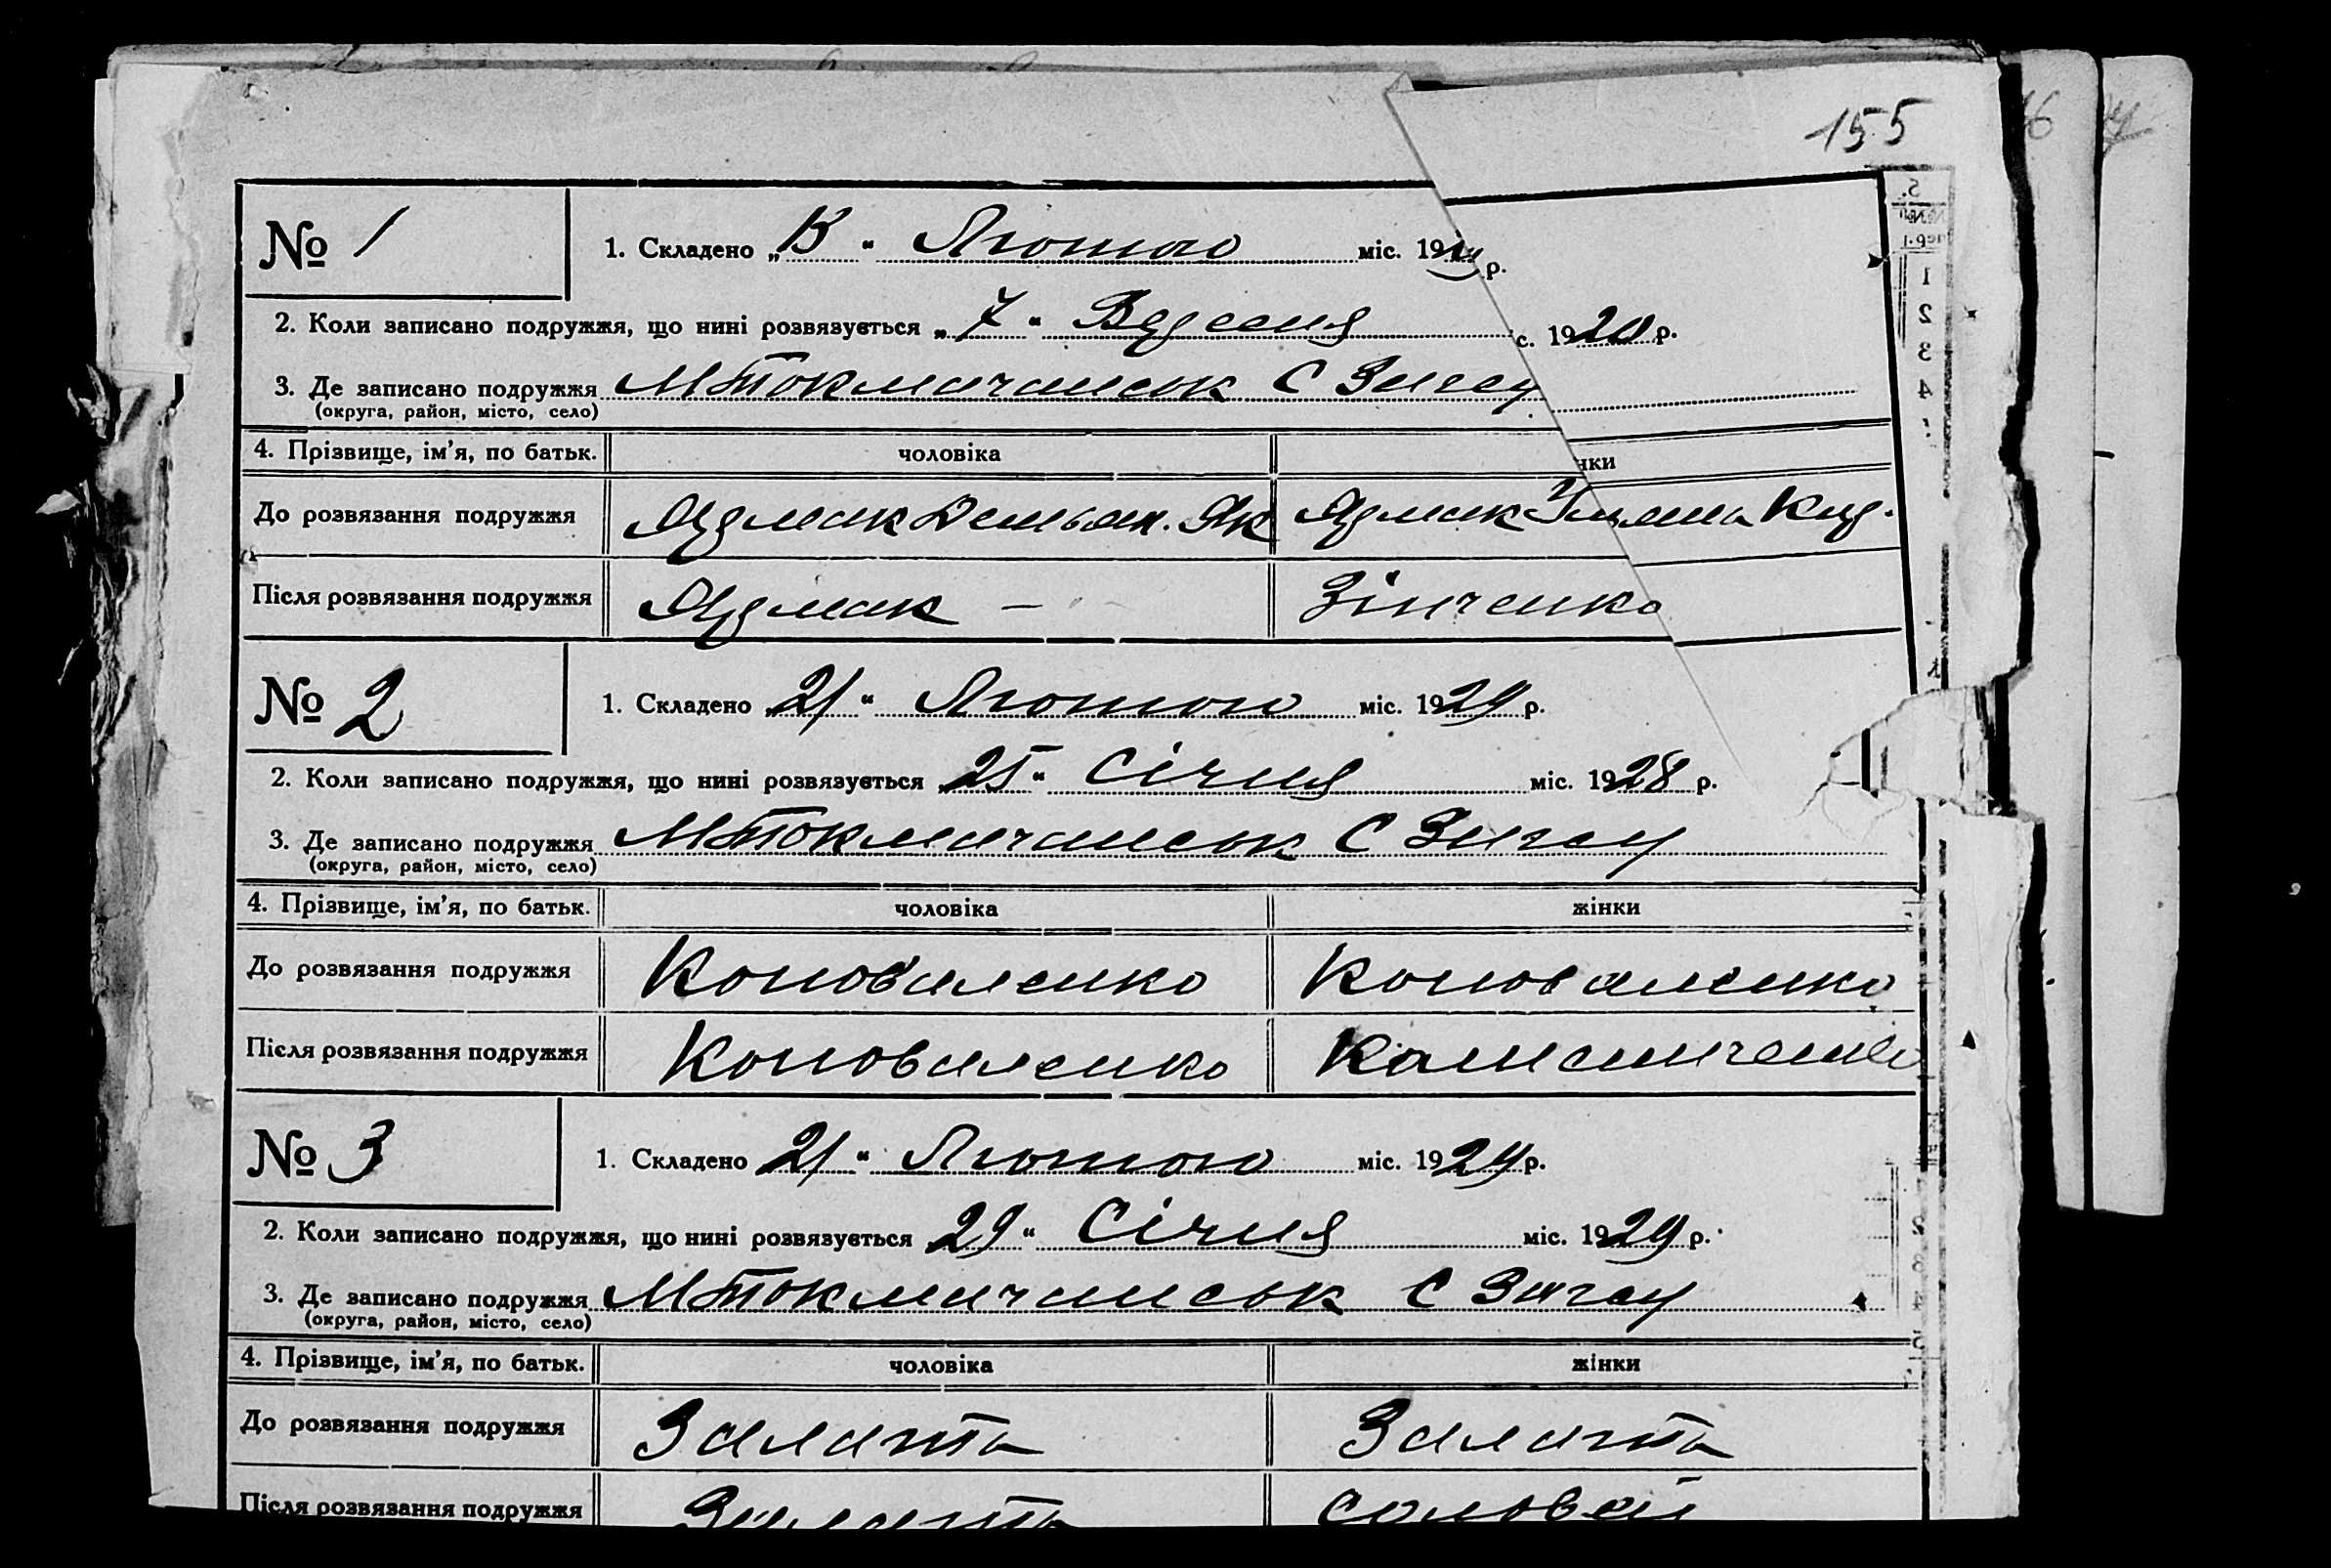 155
№ 1
1. Складено „13“ Лютого міс. 19 р.
2. Коли записано подружжя, що нині розвязується „7“ Вересня с. 1920 р.
3. Де записано подружжя МТокмачанськ С Загсу
(округа, район, місто, село)
4. Прізвище, ім’я, по батьк. чоловіка нки
До розвязання подружжя Яцмак Демьян. Як Яцмак Уляна Кир.
Після розвязання подружжя Яцмак — Зінченко
№ 2
1. Складено „21“ Лютого міс. 1929 р.
2. Коли записано подружжя, що нині розвязується „25“ Січня міс. 1928 р.
3. Де записано подружжя МТокмачанськ С Загсу
(округа, район, місто, село)
4. Прізвище, ім’я, по батьк. чоловіка жінки
До розвязання подружжя Коноваленко Коноваленко
Після розвязання подружжя Коноваленко
№ 3
1. Складено „21“ Лютого міс. 1929 р.
2. Коли записано подружжя, що нині розвязується „29“ Січня міс. 1929 р.
3. Де записано подружжя МТокмачанськ С Загсу
(округа, район, місто, село)
4. Прізвище, ім’я, по батьк. чоловіка жінки
До розвязання подружжя Залата Залата
Після розвязання подружжя Залата Соловей